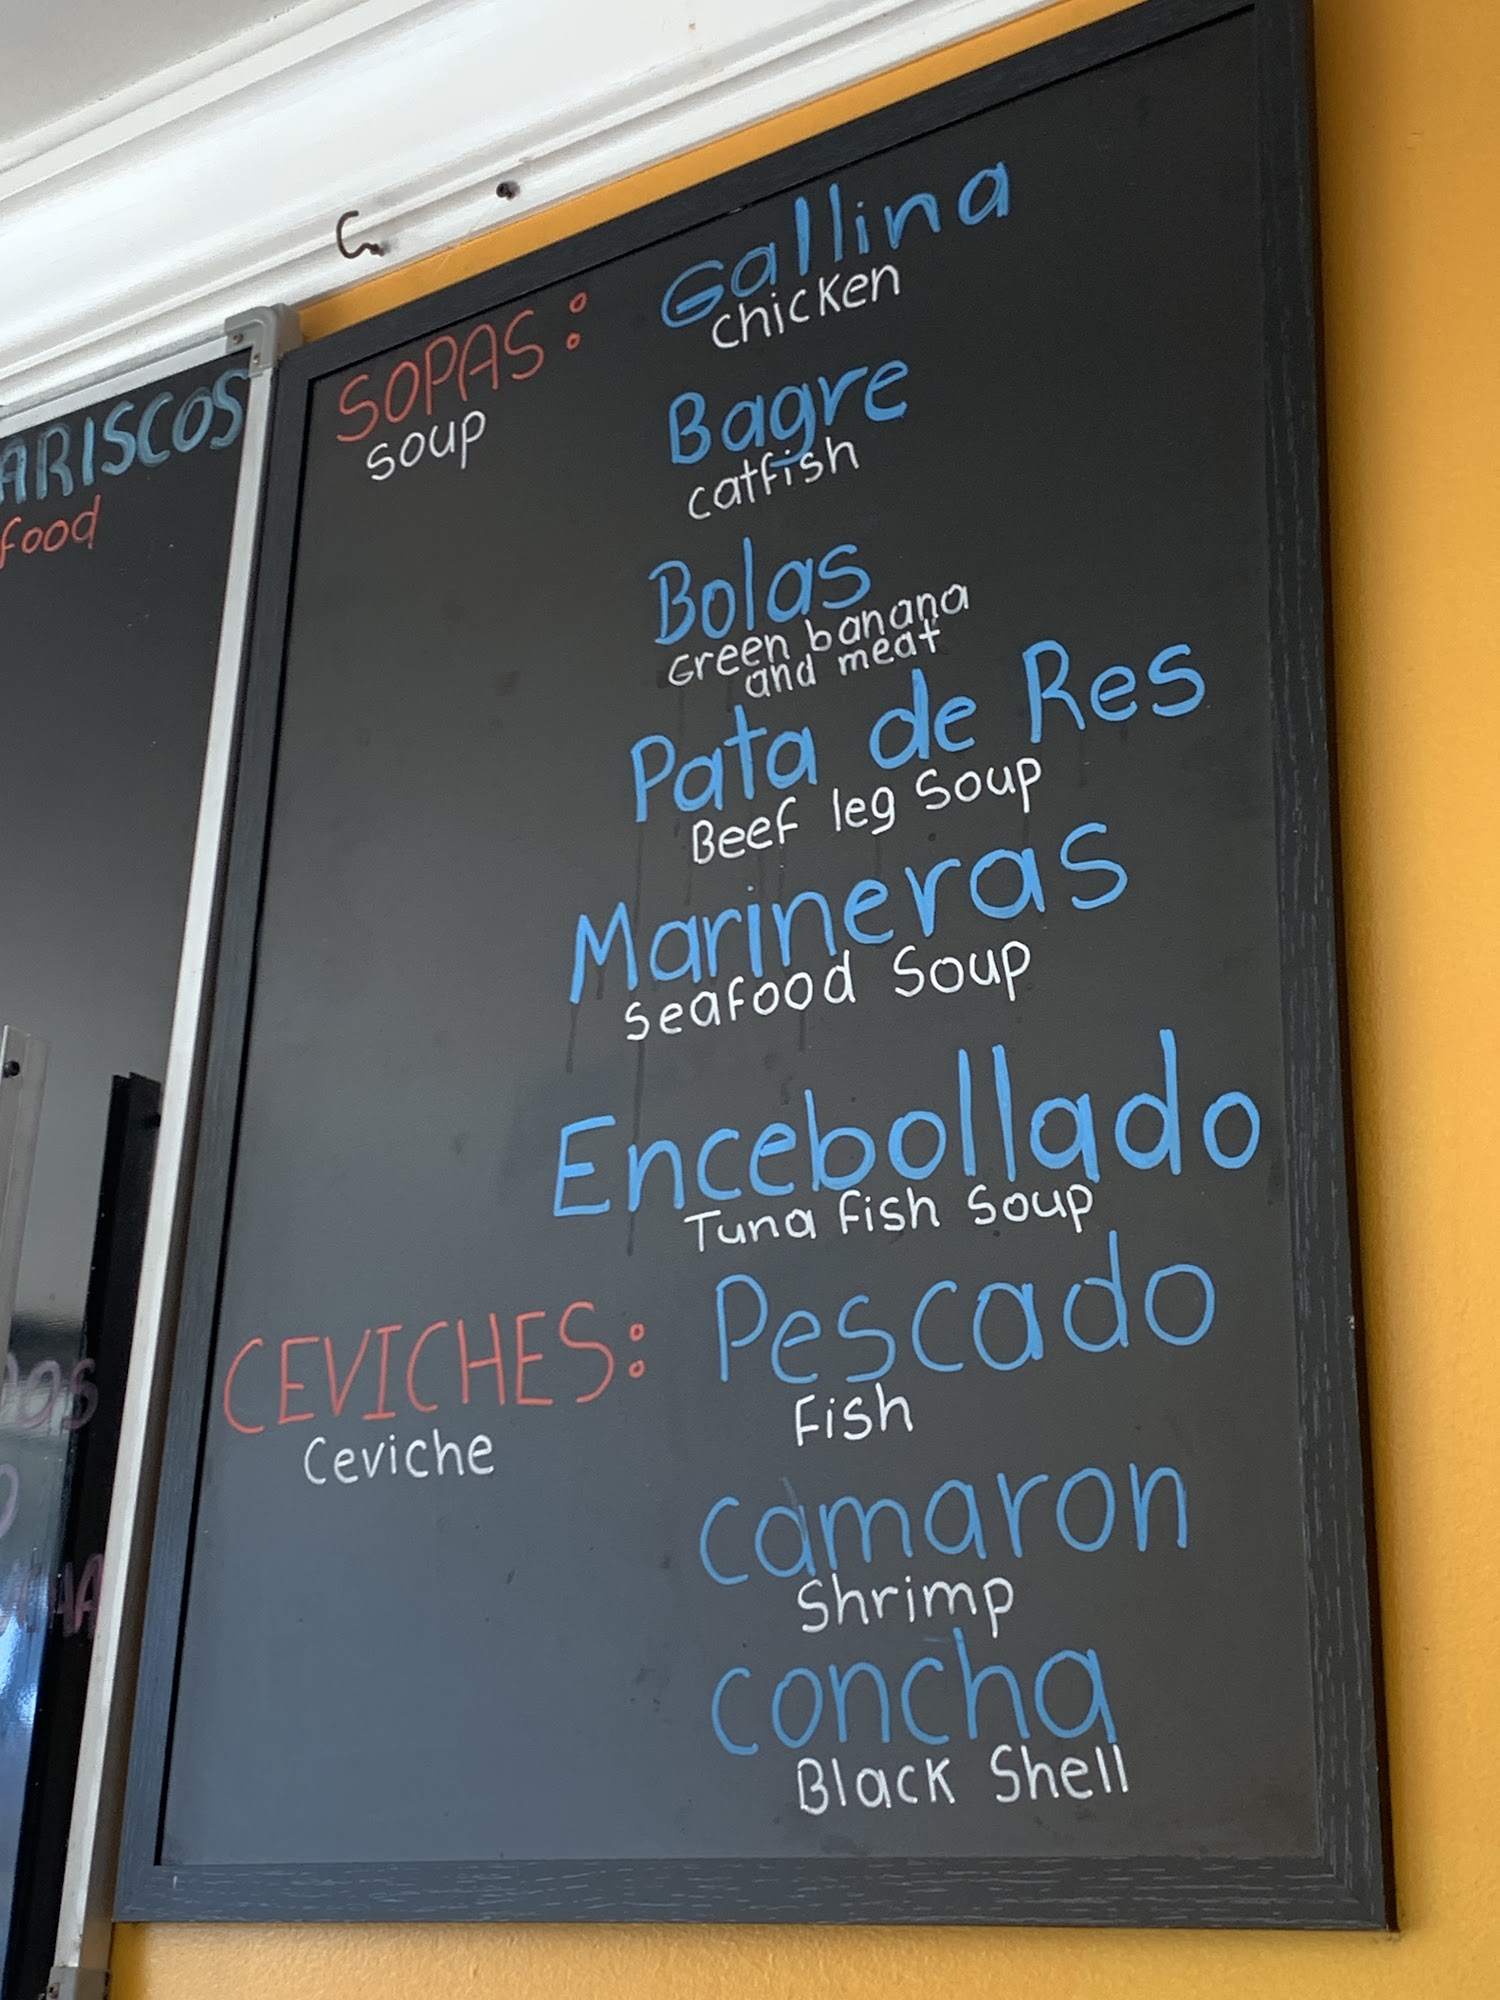 ARISCOS
food
SOPAS:
soup
Gallina
chicken
Bagre
catfish
Bolas
Green banana
and meat
Pata de Res
Beef leg Soup
Marineras
Seafood Soup
Encebollado
Tuna fish Soup
CEVICHES:
Ceviche
Pescado
Fish
camaron
Shrimp
concha
Black Shell